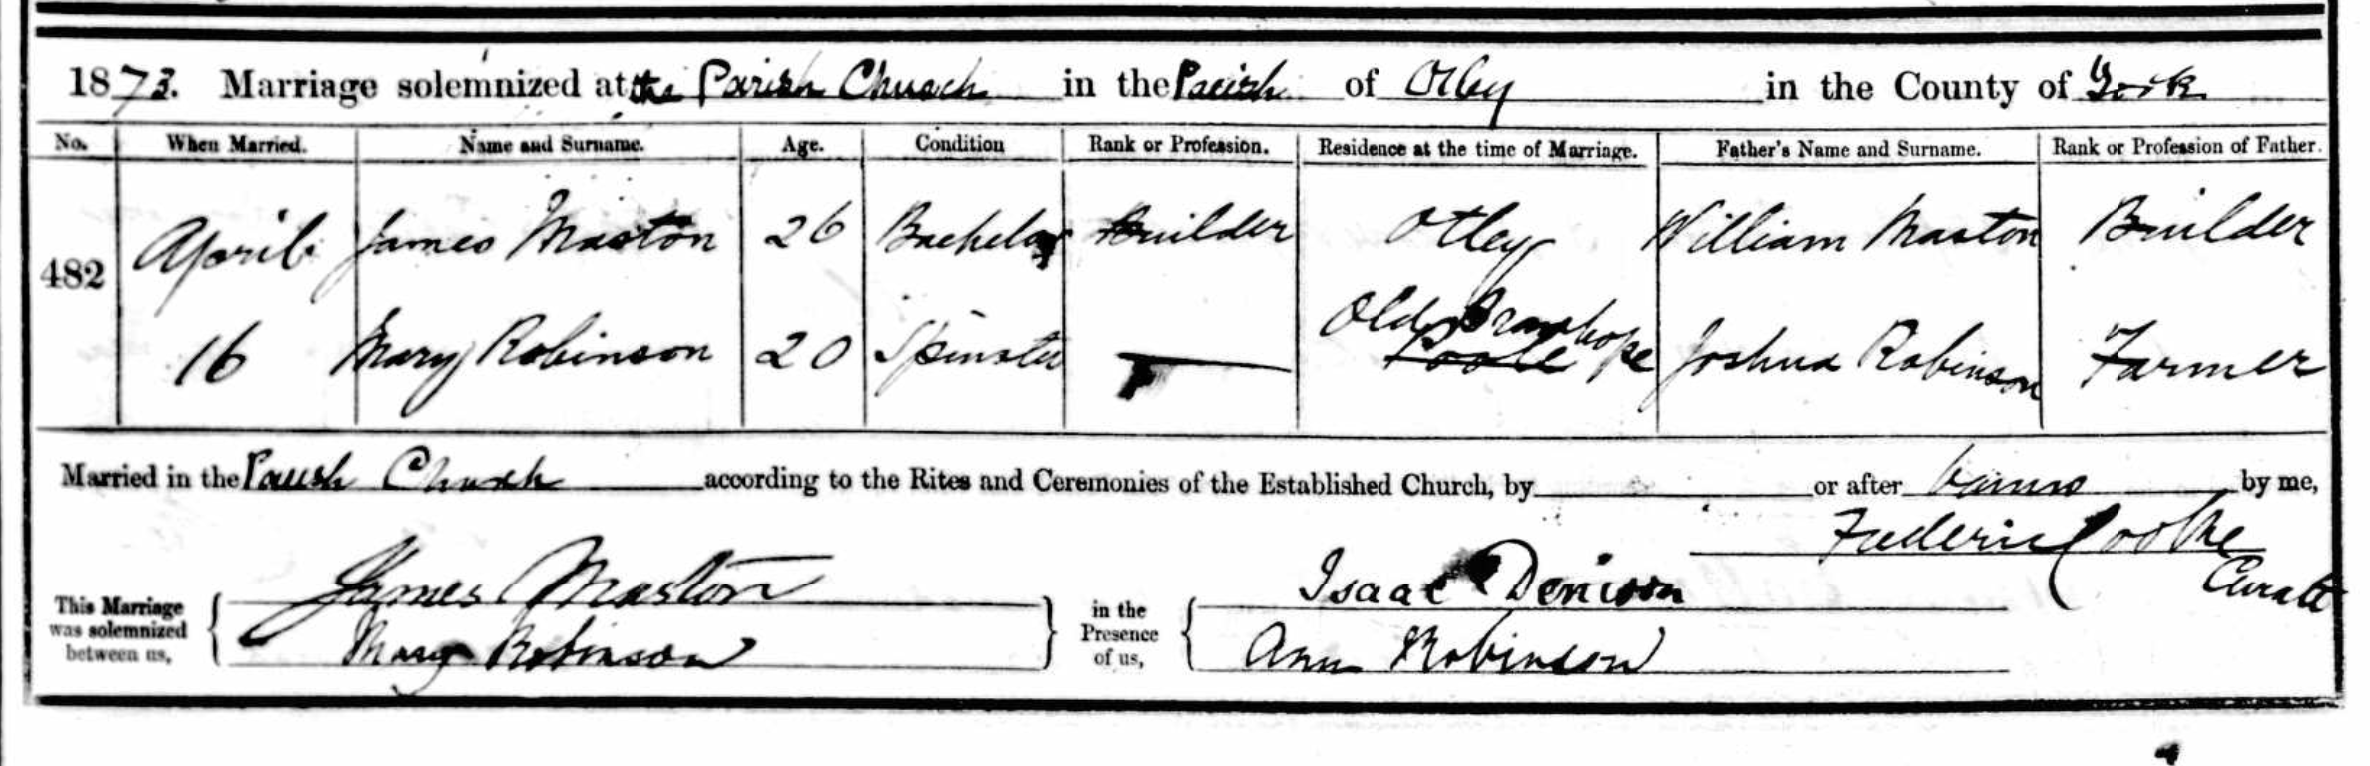 1873. Marriage solemnized at the Parish Church in the Parish of Otley in the County of York
No. When Married. Name and Surname. Age. Condition Rank or Profession. Residence at the time of Marriage. Father's Name and Surname. Rank or Profession of Father.
482
April James Maston 26 Bachelor Builder Otley William Maston Builder
16 Mary Robinson 20 Spinster Old Bramhope Poole Joshua Robinson Farmer
Married in the Parish Church according to the Rites and Ceremonies of the Established Church, by or after banns by me,
Frederic Cooke
Curate
This Marriage was solemnized between us,
James Maston
Mary Robinson
in the Presence of us,
Isaac Denison
Ann Robinson